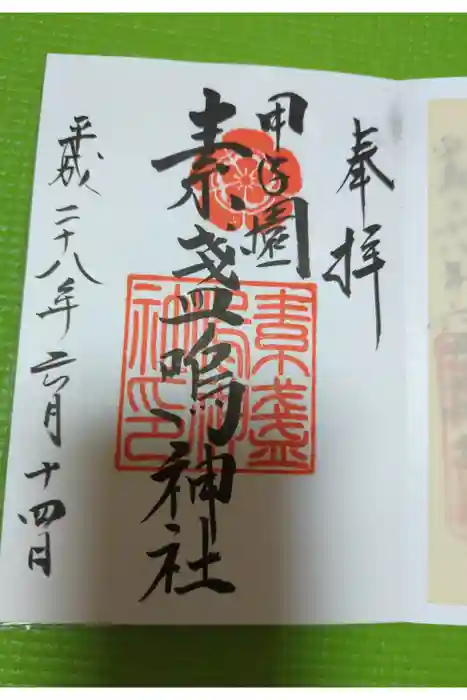 奉拝
甲子園
素盞嗚神社
素盞
神社
平成二十八年六月十四日